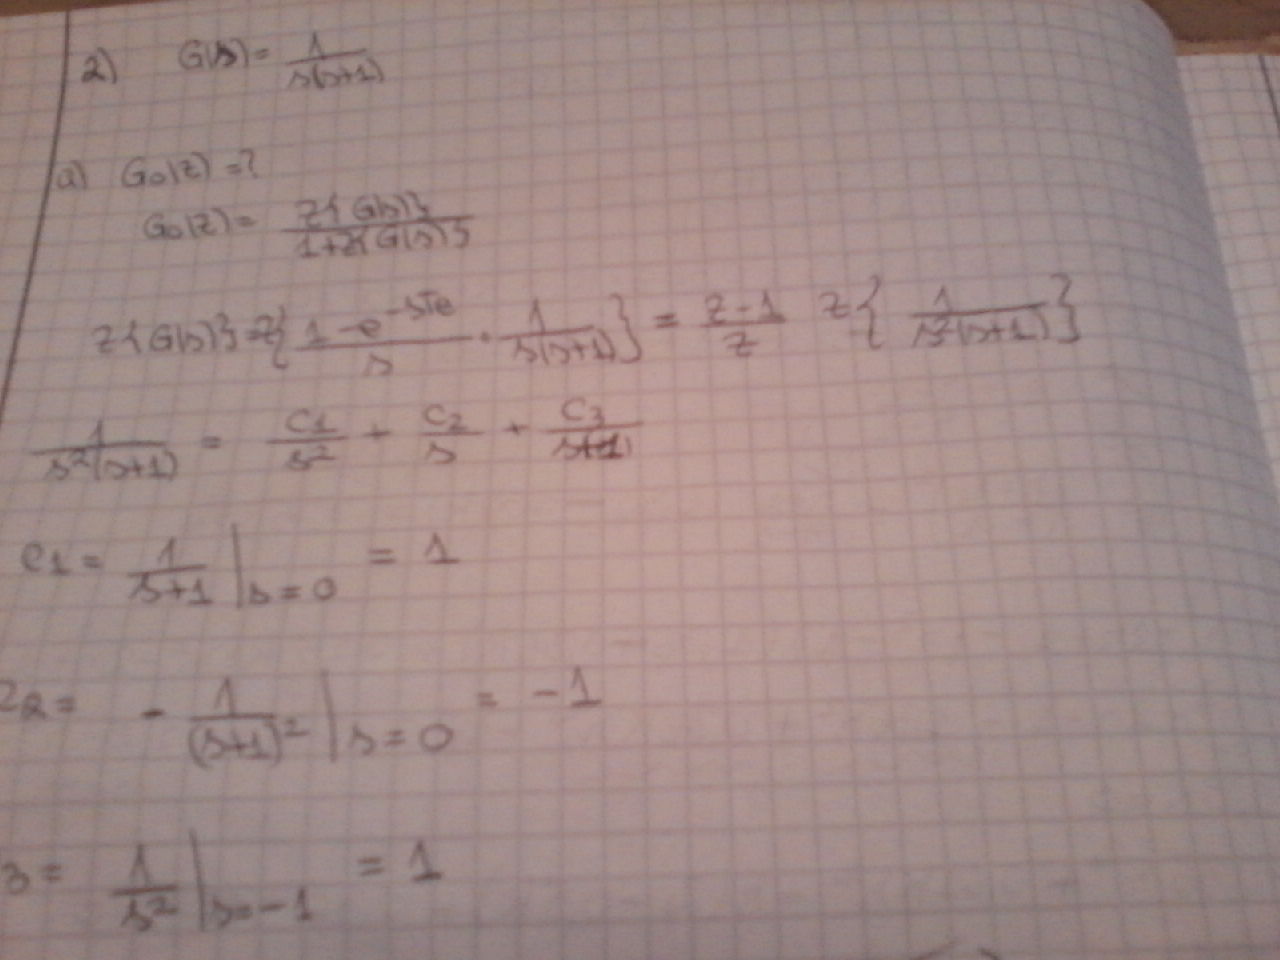 2) G(s) = 1/(s(s+1))
a) G0(z) = ?
G0(z) = Z{G(s)}/(1+Z{G(s)})
Z{G(s)} = Z{(1-e^(-sTe))/s · 1/(s(s+1))} = (z-1)/z Z{1/(s²(s+1))}
1/(s²(s+1)) = C1/s² + C2/s + C3/(s+1)
C1 = 1/(s+1) |s=0 = 1
C2 = - 1/(s+1)² |s=0 = -1
3 = 1/s² |s=-1 = 1